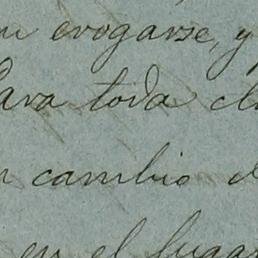 erogarse, y
Para toda
cambio
en el lugar